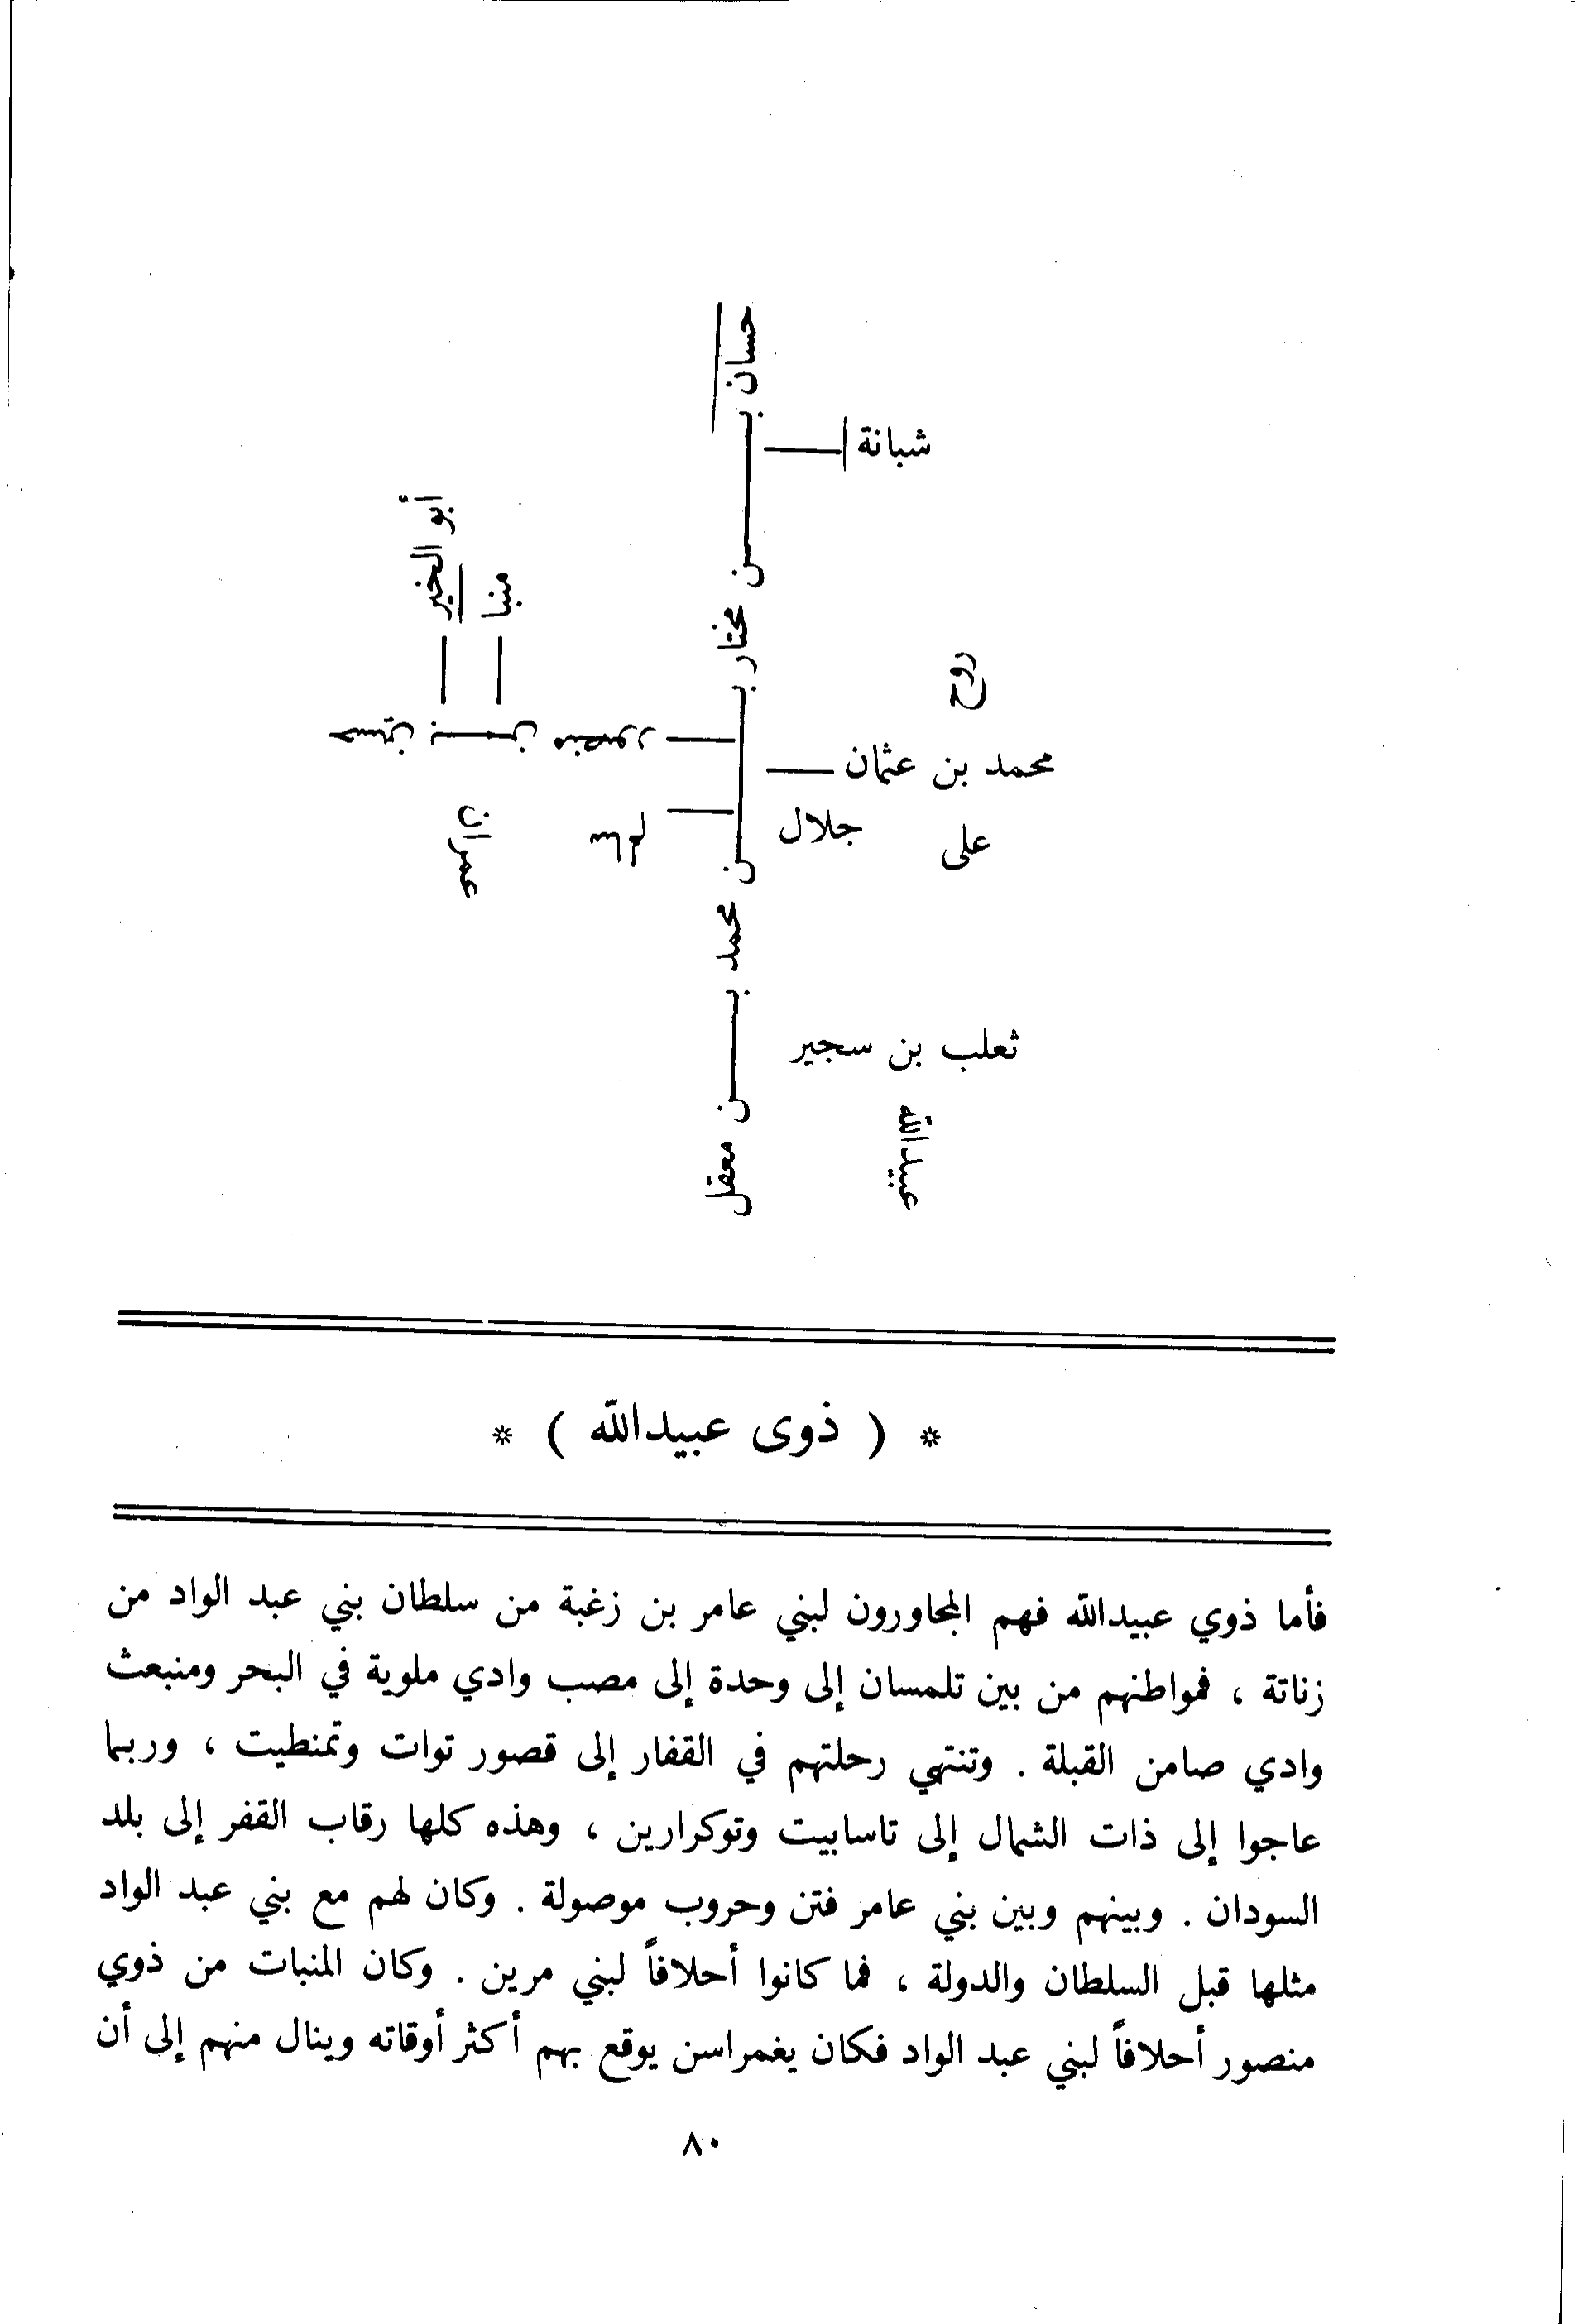 حسان بن مختار بن محمد بن معقل
شبانة
أبو الخير
منبا
روح
حسين بن منصور
محمد بن عثمان
جلال
على
سالم
عمران
ثعلب بن سجير
عبيدالله
* ( ذوى عبيدالله ) *
فأما ذوي عبيدالله فهم المجاورون لبني عامر بن زغبة من سلطان بني عبد الواد من
زناتة ، فمواطنهم من بين تلمسان إلى وحدة إلى مصب وادي ملوية في البحر ومنبعث
وادي صامن القبلة . وتنتهي رحلتهم في القفار إلى قصور توات وتمنطيت ، وربما
عاجوا إلى ذات الشمال إلى تاسابيت وتوكرارين ، وهذه كلها رقاب القفر إلى بلد
السودان . وبينهم وبين بني عامر فتن وحروب موصولة . وكان لهم مع بني عبد الواد
مثلها قبل السلطان والدولة ، فما كانوا أحلافاً لبني مرين . وكان المنبات من ذوي
منصور أحلافاً لبني عبد الواد فكان يغمراسن يوقع بهم أكثر أوقاته وينال منهم إلى أن
٨٠